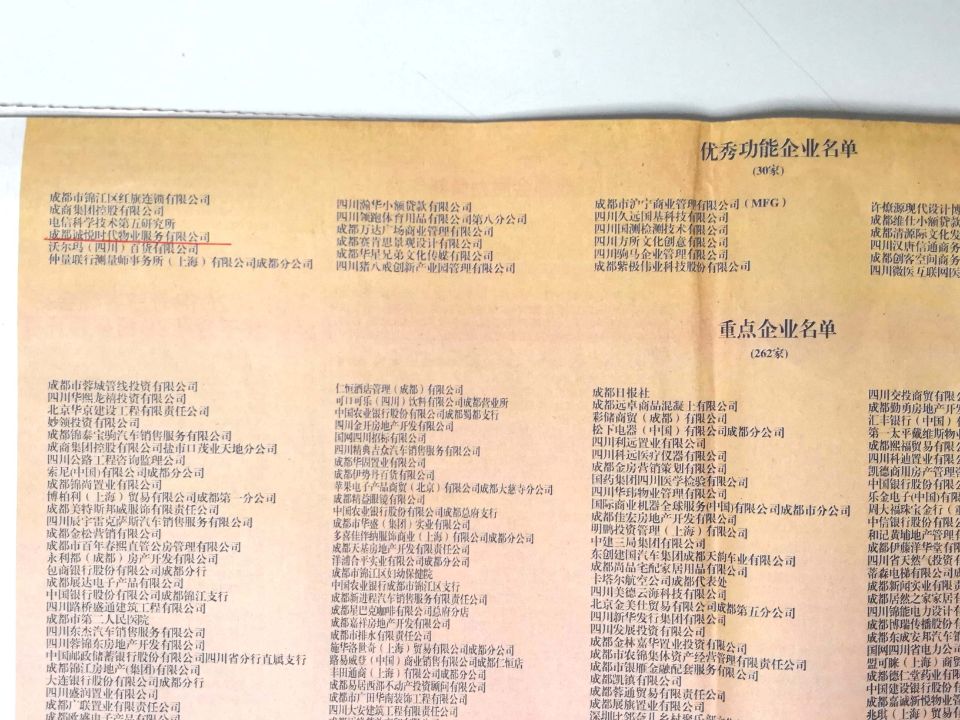 优秀功能企业名单
(30家)
成都市锦江区红旗连锁有限公司
成商集团控股有限公司
电信科学技术第五研究所
成都诚悦时代物业服务有限公司
沃尔玛（四川）百货有限公司
仲量联行测量师事务所（上海）有限公司成都分公司
四川瀚华小额贷款有限公司
四川领跑体育用品有限公司第八分公司
成都万达广场商业管理有限公司
成都赛肯思景观设计有限公司
成都华星兄弟文化传媒有限公司
四川猪八戒创新产业园管理有限公司
成都市沪宁商业管理有限公司(MFG)
四川久远国基科技有限公司
四川国测检测技术有限公司
四川方所文化创意有限公司
四川驹马企业管理有限公司
成都紫极伟业科技股份有限公司
许燎源现代设计博
成都维仕小额贷款
成都清源际文化发
四川汉唐信通商务
成都创客空间商务
四川微医互联网医
重点企业名单
(262家)
成都市蓉城管线投资有限公司
四川华熙龙禧投资有限公司
北京华京建设工程有限责任公司
妙领投资有限公司
成都锦泰宝驹汽车销售服务有限公司
成商集团控股有限公司盐市口茂业天地分公司
四川公路工程咨询监理公司
索尼(中国)有限公司成都分公司
成都锦尚置业有限公司
博柏利（上海）贸易有限公司成都第一分公司
成都美特斯邦威服饰有限责任公司
四川辰宇雷克萨斯汽车销售服务有限公司
成都金松营销有限公司
成都市百年春熙直管公房管理有限公司
永利都（成都）房产开发有限公司
包商银行股份有限公司成都分行
成都展达电子产品有限公司
中国银行股份有限公司成都锦江支行
四川路桥盛通建筑工程有限公司
成都市第二人民医院
四川东杰汽车销售服务有限公司
四川蓉锦东房地产开发有限公司
中国邮政储蓄银行股份有限公司四川省分行直属支行
成都锦江房地产(集团)有限公司
大连银行股份有限公司成都分行
四川盛润置业有限公司
成都广联置业有限责任公司
仁恒酒店管理（成都）有限公司
可口可乐（四川）饮料有限公司成都营业所
中国农业银行股份有限公司成都蜀都支行
四川金开房地产开发有限公司
国网四川招标有限公司
四川精典吉众汽车销售服务有限公司
成都华固置业有限公司
成都伊势丹百货有限公司
苹果电子产品商贸（北京）有限公司成都大慈寺分公司
成都精益眼镜有限公司
中国农业银行股份有限公司成都总府支行
成都市华盛（集团）实业有限公司
多喜佳伴纳服饰商业（上海）有限公司成都分公司
成都天基房地产开发有限责任公司
洋浦合平实业有限公司成都分公司
成都市锦江区妇幼保健院
中国农业银行股份有限公司成都市锦江区支行
成都新进程汽车服务有限责任公司
成都星巴克咖啡有限公司总府分店
成都嘉祥房地产开发有限公司
成都市排水有限责任公司
施华洛世奇（上海）贸易有限公司成都分公司
路易威登（中国）商业销售有限公司成都仁恒店
丰田通商（上海）有限公司成都分公司
成都易居西部不动产投资顾问有限公司
成都市广田华南装饰工程有限公司
成都日报社
成都远卓商品混凝土有限公司
彩储商贸（成都）有限公司
松下电器（中国）有限公司成都分公司
四川利远置业有限公司
四川科远医疗仪器有限公司
成都金房营销策划有限公司
国药集团四川医学检验有限公司
四川华韦物业管理有限公司
国际商业机器全球服务(中国)有限公司成都市分公司
成都佳宏房地产开发有限公司
明鹏投资管理（上海）有限公司
中建三局集团有限公司
东创建国汽车集团成都天韵车业有限公司
成都尚品宅配家居用品有限公司
卡塔尔航空公司成都代表处
四川美德云海科技有限公司
北京金美仕贸易有限公司成都第五分公司
四川新华发行集团有限公司
四川发展投资有限公司
成都金林嘉华置业投资有限公司
成都市农锦集体资产经营管理有限责任公司
成都市银雁金融配套服务有限公司
成都凯镇有限公司
成都蓉通贸易有限责任公司
成都展旗置业有限公司
四川交投商贸有限公
成都勤勇房地产开
汇丰银行（中国）有
第一太平戴维斯物业
成都熙福贸易有限公
四川科迪置业有限公
凯德商用房产管理
中国银行股份有限公
乐金电子(中国)有限
周大福珠宝金行（重
中信银行股份有限
和记黄埔地产管理有
成都伊藤洋华堂有限
四川省天然气投资有
蒂森电梯有限公司
成都新闻实业有限
成都居然之家家居
四川锦能电力设计有
成都博瑞传播股份有
成都东成安邦汽车销
国网四川省电力公司
盟可睐（上海）商贸
成都德仁堂药业有限
中国建设银行股份有
成都嘉诚新悦物业管